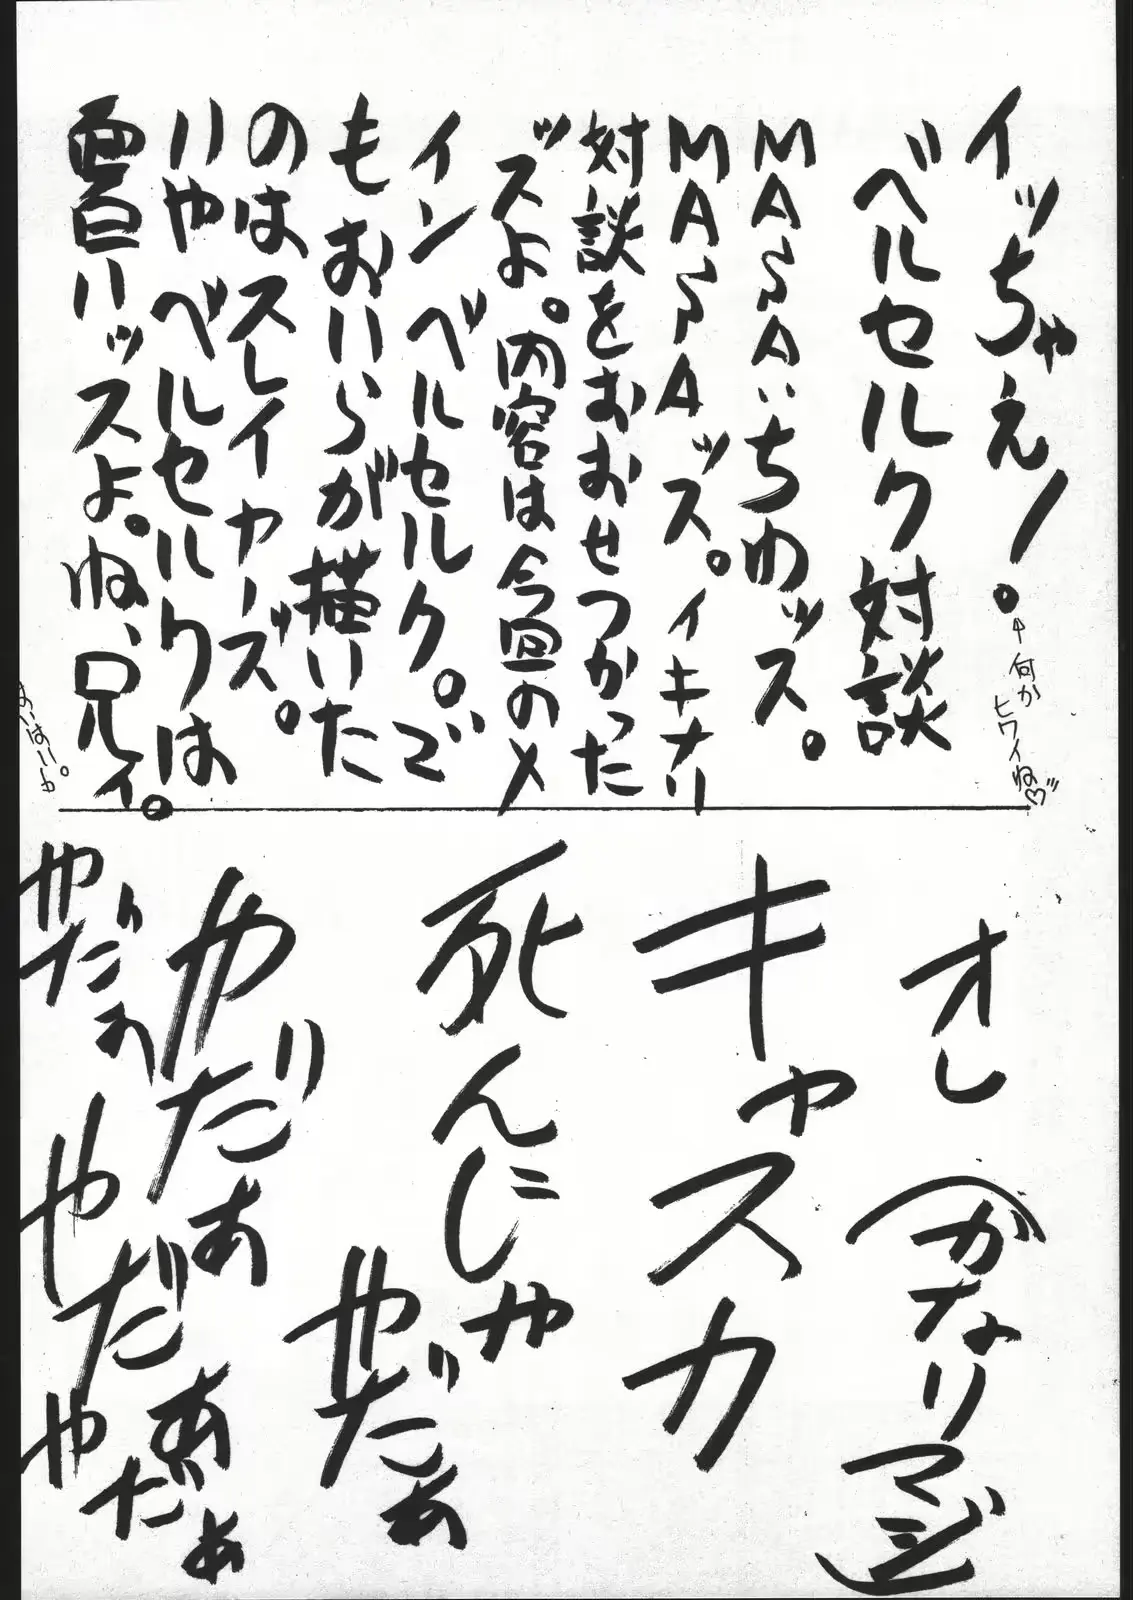 イッちゃえ!。
←何か
ヒワイね♡
ベルセルク対談
MASAいちわッス。
MASAッス。イキナリ
対談をおおせつかった
ッスよ。内容は今回のメ
イン ベルセルク。で
もおいらが描いた
のはスレイヤーズ。
いやベルセルクは
いいッスよ。ね、兄ィ。
オレ(かなりマジ)
キャスカ
死んじゃ
やだぁ
やだぁ
やだぁ
やだぁ
やだぁ